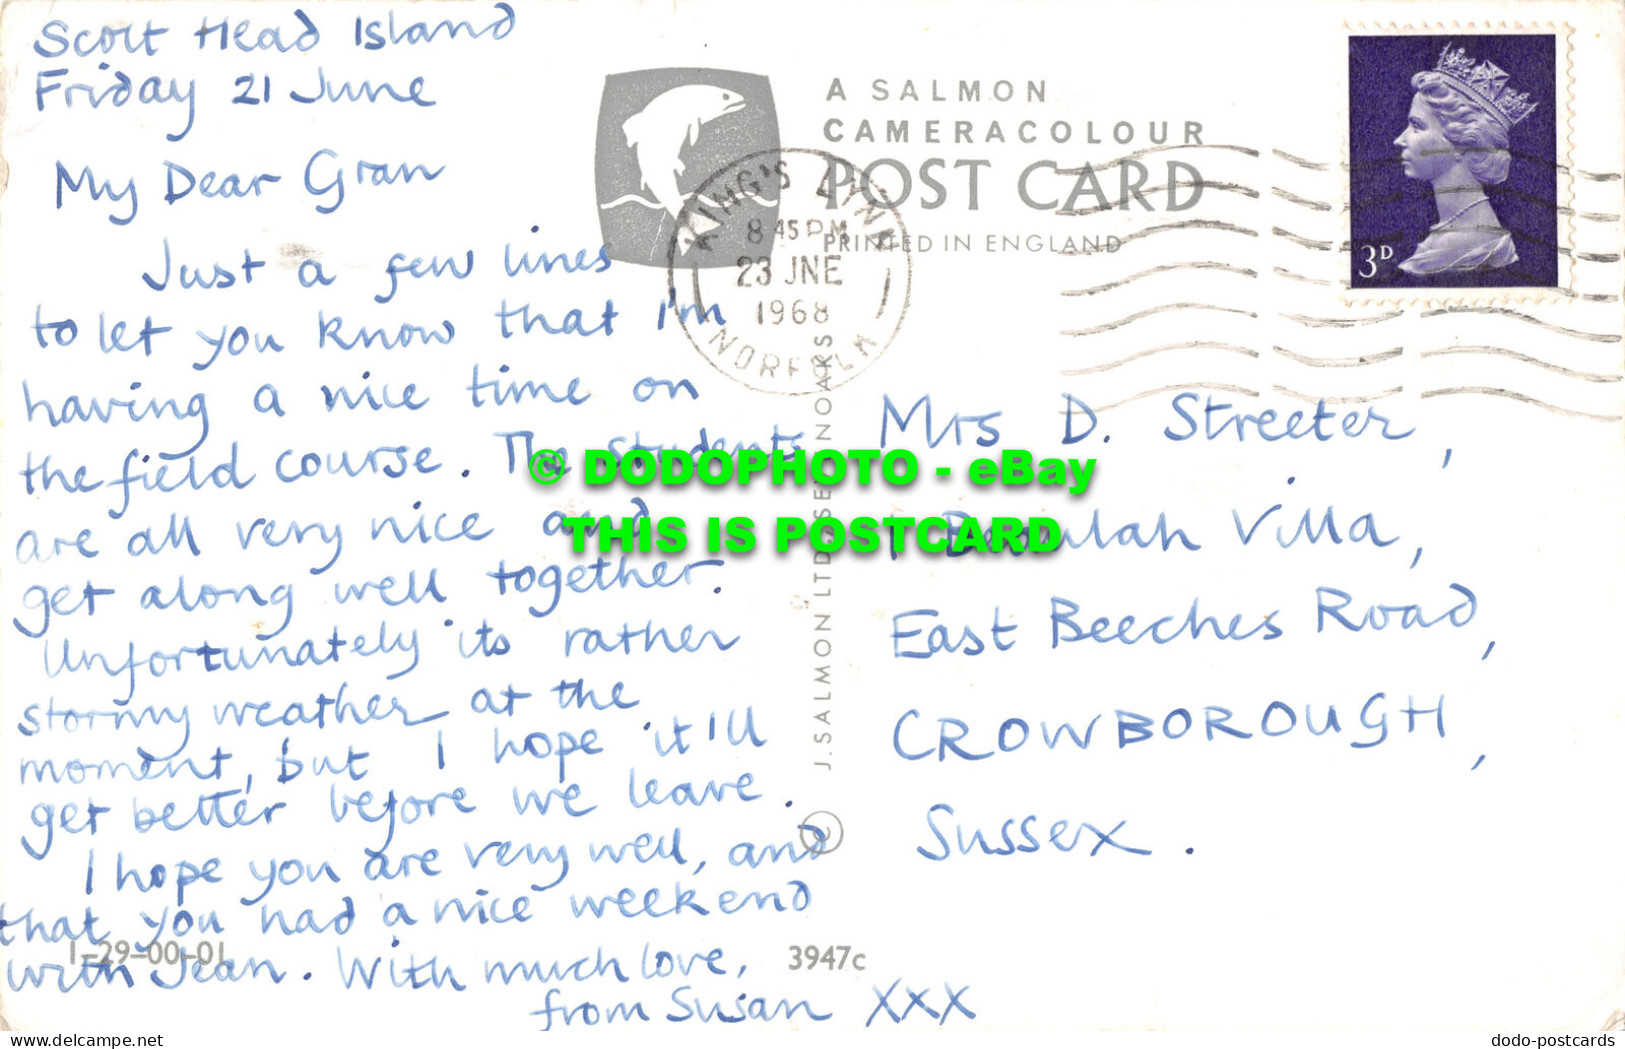 Scolt Head Island
Friday 21 June
My Dear Gran
Just a few lines
to let you know that I'm
having a nice time on
the field course. The students
are all very nice and
get along well together.
Unfortunately its rather
stormy weather at the
moment, but I hope it'll
get better before we leave.
I hope you are very well, and
that you had a nice weekend
with Jean. With much love,
from Susan XXX
A SALMON
CAMERACOLOUR
POST CARD
PRINTED IN ENGLAND
KING'S LYNN
8 45 PM
23 JNE
1968
NORFOLK
3D
Mrs D. Streeter,
1 Beulah Villa,
East Beeches Road,
CROWBOROUGH,
Sussex.
© J. SALMON LTD., SEVENOAKS
1-29-00-01
3947c
© DODOPHOTO - eBay
THIS IS POSTCARD
delcampe.net
dodo-postcards